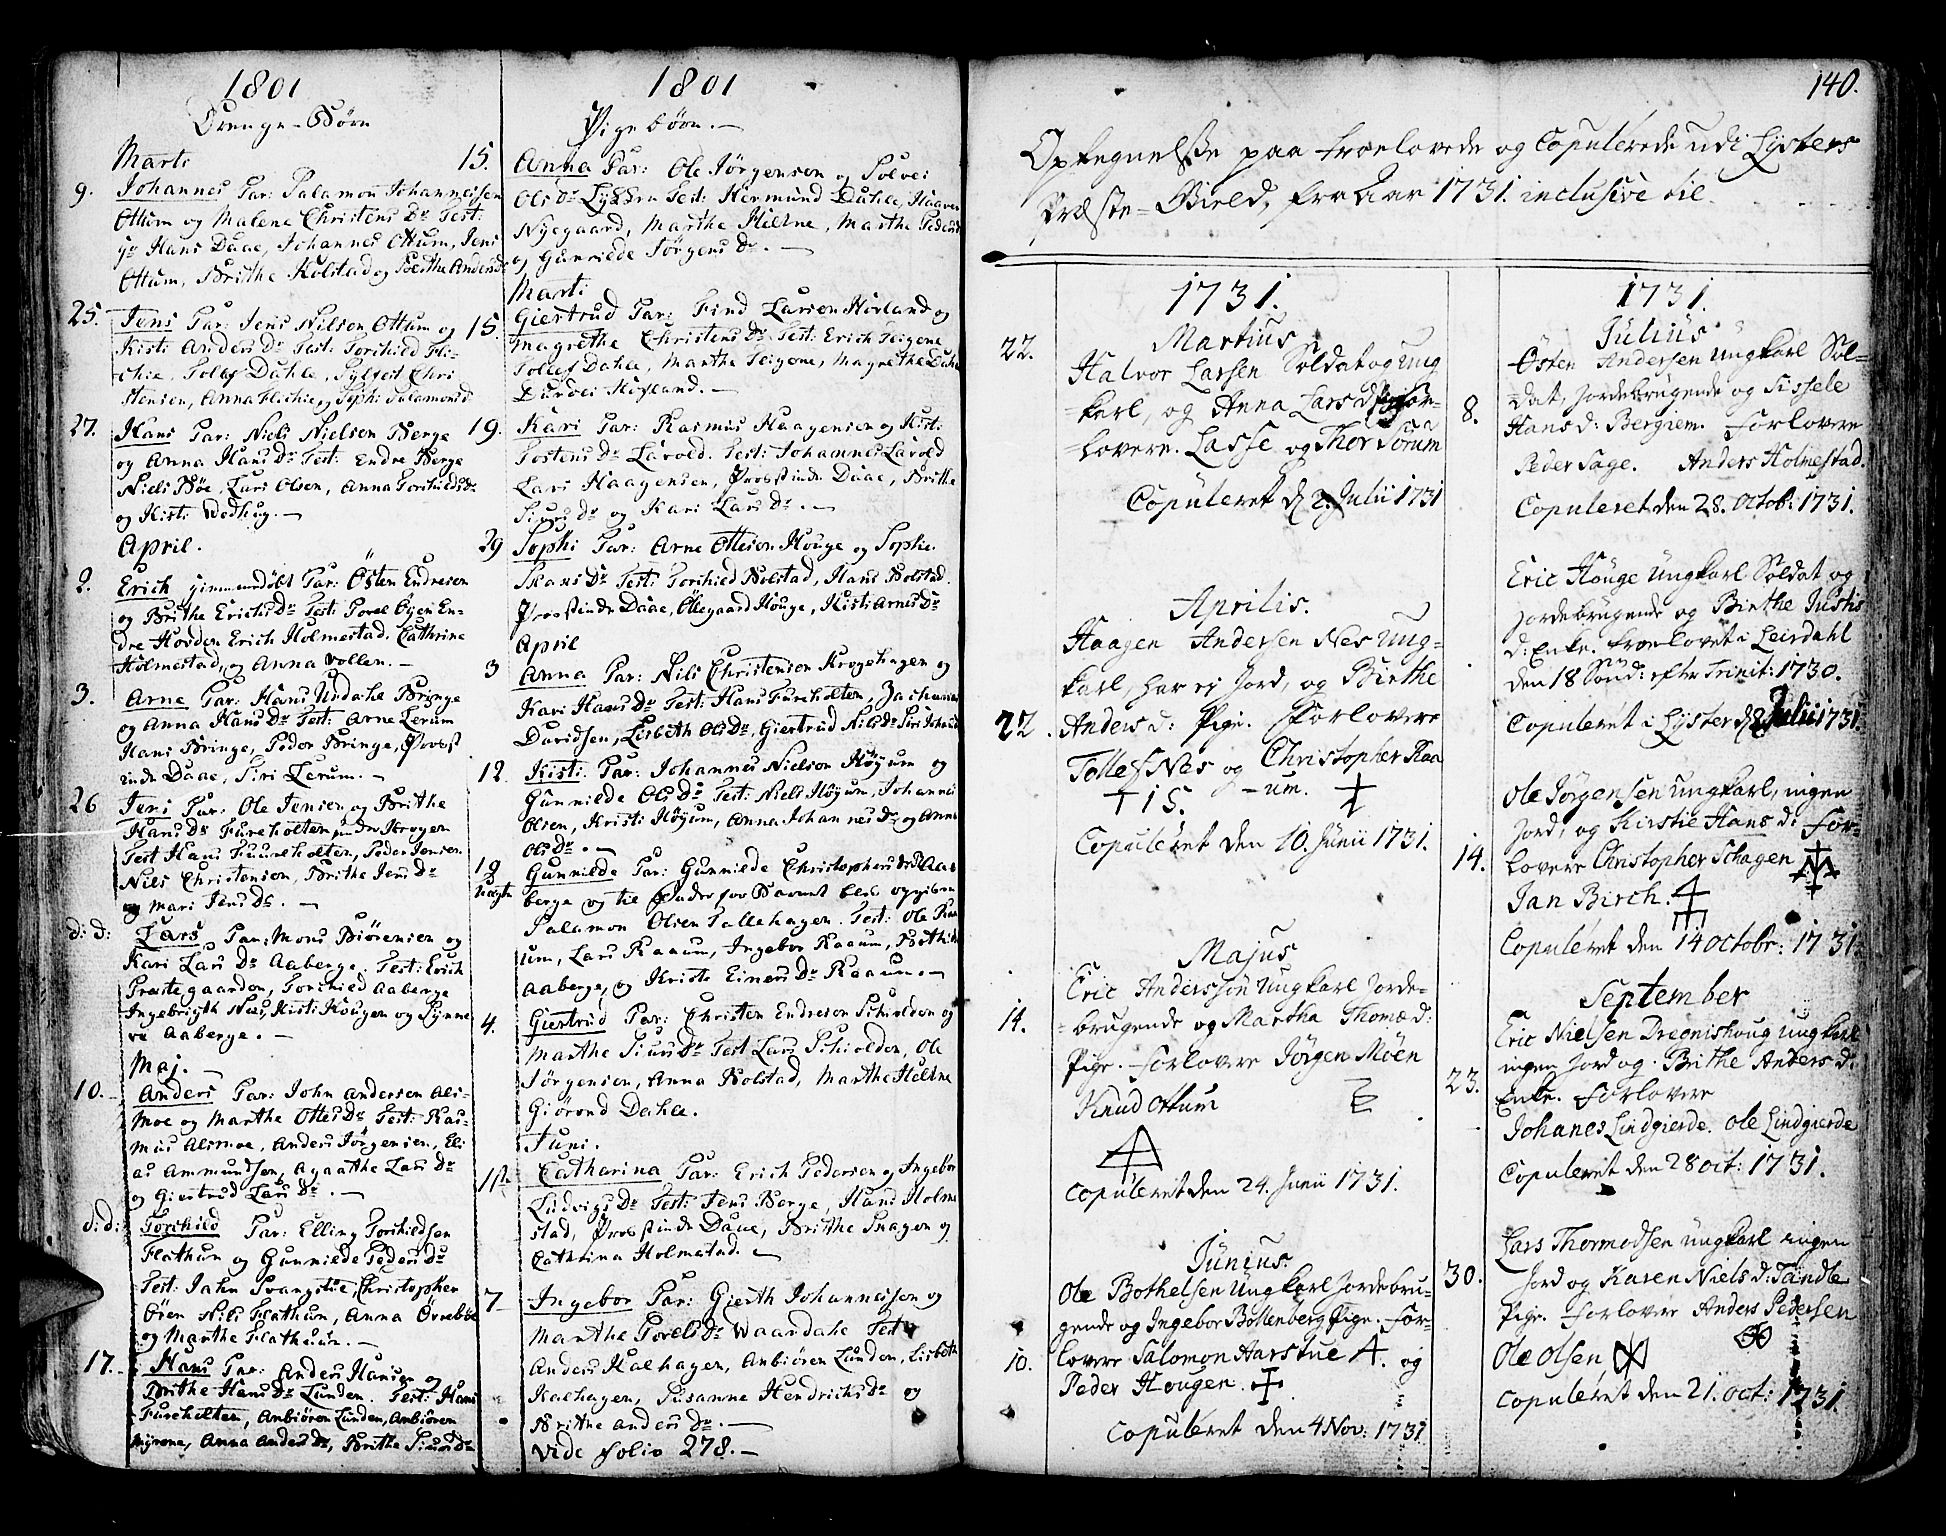 1801
Drenge-Börn
Marti
9. Johannes Par: Salamon Johannessen
Ottum og Malene Christens Dr Test:
Hans Daae, Johannes Ottum, Jens
Ottum, Brithe Kolstad og Berthe Anders Dr
25. Jens Par: Jens Nilson Ottum og
Kisti Anders Dr Test: Torchild Fli-
chie, Tollef Dahle, Sylfest Chri
stensen, Anna Flichie og Sophi Salamonsd
27. Hans Par: Niels Nielson Berge
og Anna Hans Dr Test: Endre Berge
Niels Böe, Lars Olsen, Anna Torchildsdr
og Kisti Wedhug.
April.
2. Erich hiemmedöbt Par: Östen Endresen
og Brithe Erichs Dr Test: Povel Öyen En-
dre Hovden Erich Holmestad, Cathrine
Holmestad, og Anna Vollen.
3. Arne Par: Hans Undahe Bringe
og Anna Hans Dr Test: Arne Lerum
Hans Bringe, Peder Bringe, Provst
inde Daae, Siri Lerum.
26 Jens Par: Ole Jensen og Brithe
Hans Dr Fureholten Krogen
Test Hans Fuureholten, Peder Jensen
Nils Christensen, Brithe Jens Dr
og Mari Jens Dr.
d: d: Lars Par: Mons Biörensen og
Kari Lars Dr Aaberge. Test: Erich
Prestegaarden, Torchild Aaberge
Ingebrigth Næs, Kisti Hougen og Synne
ve Aaberge.
Maj.
10. Anders Par: John Andersen Als-
Moe og Marthe Ottes Dr Test: Ras-
mus Alsmoe, Anders Jörgensen, Eli-
as Ammundsen, Agaathe Lars Dr
og Giertrud Lars Dr.
d: d: Torchild Par: Elling Torchildsen
Flathun og Gunnilde Peders Dr
Test: Jahn Svangstue, Christopher
Ören Nils Flathun, Anna Örneböe
og Marthe Flathuun.
17. Hans Par: Anders Hansen og
Brithe Hans Dr Lunden. Test: Hans
Fureholten, Anbiören Lunden, Anbiören
Myrene, Anna Anders Dr, Brithe Siurs Dr
1801
Pigebörn.
15. Anna Par: Ole Jörgenson og Solvei
Ols Dr Test: Hermund Dahle, Haaver
Nyegaard, Marthe Heltne, Marthe Pedersd
og Gunnilde Jörgens Dr.
Marti
15. Giertrud Par: Find Larsen Hovland og
Magrethe Christens Dr Test: Erich Teigene
Tollef Dahle, Marthe Teigene, Magrethe Dahe
Durdei Hofland.
19. Kari Par: Rasmus Haagensen og Kist:
Tostens Dr Lavold. Test: Johannes Lavold
Lars Haagensen, Provstinde Daae, Brithe
Siurs Dr og Kari Lars Dr.
29 Sophi Par: Arne Ottesen Houge og Sophie
Hans Dr Test: Torchied Bolstad, Hans Bolstad.
Provstinde Daae, Ollegaard Houge, Kisti Arnes Dr
April
3 Anna Par: Nils Christenson Krogshagen og
Kari Hans Dr Test: Hans Fureholten, Zacharias
Davidsen, Lisbeth Ols Dr, Giertrud Nils Dr Siri
12. Kisti Par: Johannes Nielson Höyum og
Gunnilde Ols Dr Test: Niels Höyum, Johannes
Olsen, Kristi Höyum, Anna Johannes Dr og Anna
Ols Dr.
19 Gunnilde Par: Gunnilde Christophers Dr Aa
berge og til fader for Barnet blev opgiven
Salamon Olsen Tallehagen. Test: Ole Raa
um, Lars Raaum, Ingebor Raaum, Brithe
Aaberge, og Kriste Einers Dr Raaum.
4. Giertrud Par: Christen Endreson Schiolden og
Marthe Siurs Dr Test Lars Schiolden, Ole
Jörgensen, Anna Bolstad, Marthe Heltne
Giörond Dahle.
Juni.
Catharina Par: Erich Pedersen og Ingebor
Ludvigs Dr Test: Jens Berge, Hans Holme
stad, Provstinde Daae, Brithe Snagen og
Cathrina Holmestad.
7 Ingebor Par: Gierth Johannessen og
Marthe Povels Dr Waardahe Test
Anders Kalhagen, Anbiören Lunden, Lisbeth
Kalhagen, Susanne Hendrichs Dr og
Brithe Anders Dr.
Vide folio 278.
140.
Optegnelse paa trolovede og Copulerede udi Lysters
Præste-Gield, fra Aar 1731. inclusive til
1731.
Martius
22. Halvor Larsen Soldat og ung
karl, og Anna Larsd For-
lovere. Lasse og Thor Sorum
Copuleret d 2 Julii 1731
Aprilis.
Haagen Andersen Nes ung-
karl, har ej Jord, og Birthe
22. Anders d: Pige. Forlovere
Tollef Nes og Christopher Raa
+ 15. -um. ‡
Copuleret den 10. Junii 1731.
Majus
Eric Andersson ungkarl Jorde-
14. brugende og Martha Thomæ d:
Pige. Forlovere Jörgen Möen
Knud Ottum
Copuleret den 24. Junii 1731.
Junius.
Ole Bothelsen ungkarl Jordebru-
gende og Ingebor Bottenberg Pige. For-
10. lovere Salomon Aarstue A. og
Peder Hougen. ‡
Copuleret den 4 Nov: 1731
1731
Julius
Östen Andersen ungkarl Sol-
dat, jordebrugende og Sissele
8. Hans d: Bergiem. Forlovere
Peder Sage. Anders Holmestad.
Copuleret den 28. Octob: 1731.
Eric Houge ungkarl Soldat og
jordebrugende og Birthe Justis
d: Enke. troelovet i Leirdahl
den 18 Sönd: efter Trinit: 1730.
Copuleret i Lyster d 8 Julii 1731.
Ole Jörgensen ungkarl, ingen
Jord, og Kirstie Hans d: For-
14. lovere Christopher Schagen
Jan Birch.
Copuleret den 14 Octobr: 1731.
September
Eric Nielsen Dregnishoug ungkarl
ingen Jord og Brithe Anders d:
23. Enke. Forlovere
Johanes Lindgierde. Ole Lindgierde
Copuleret den 28 oct: 1731.
Lars Thormodsen ungkarl ingen
30. Jord og Karen Niels d: Tandle
Pige. Forlovere Anders Pedersen
Ole Olsen
Copuleret den 21. oct: 1731.